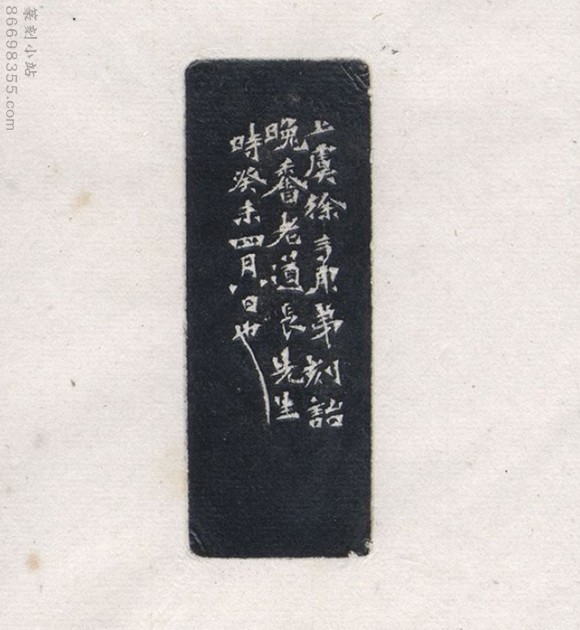 上虞徐三庚弟刻詒
晚香老道長先生
時癸未四月八日也
篆刻小站
86698355.com